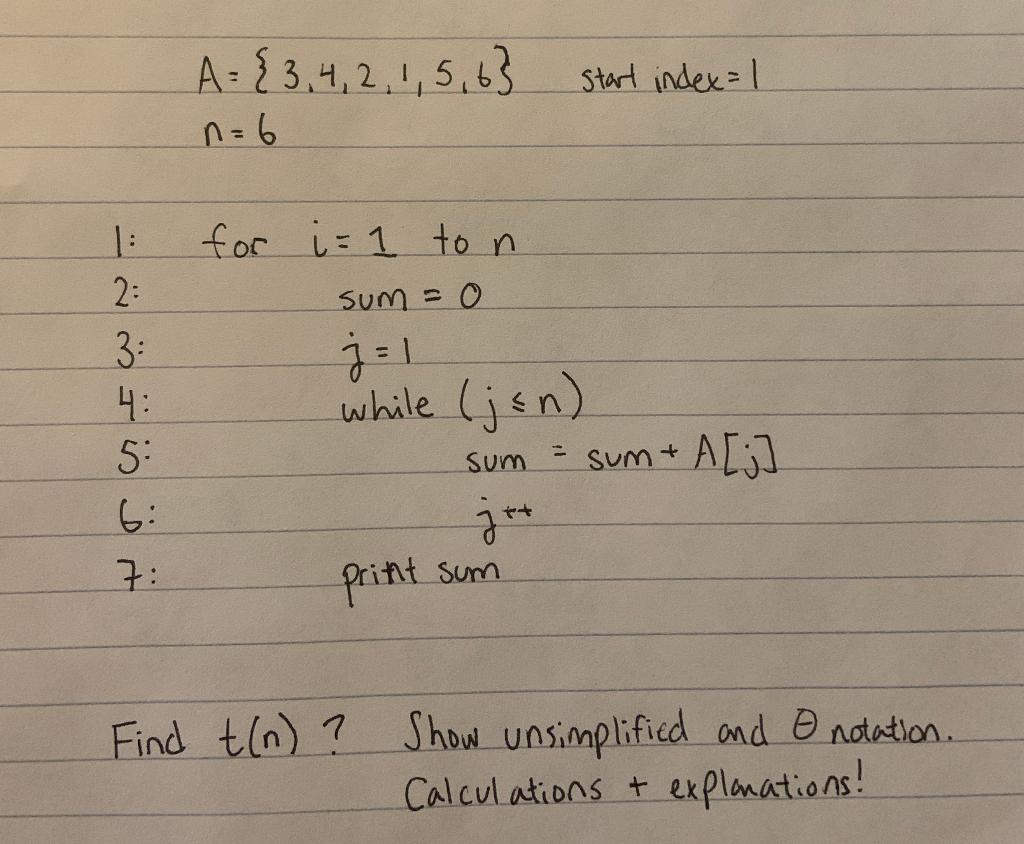 A = { 3, 4, 2, 1, 5, 6} start index = 1
n = 6
1: for i = 1 to n
2: sum = 0
3: j = 1
4: while (j ≤ n)
5: sum = sum + A[j]
6: j++
7: print sum
Find t(n) ? Show unsimplified and Θ notation.
Calculations + explanations!